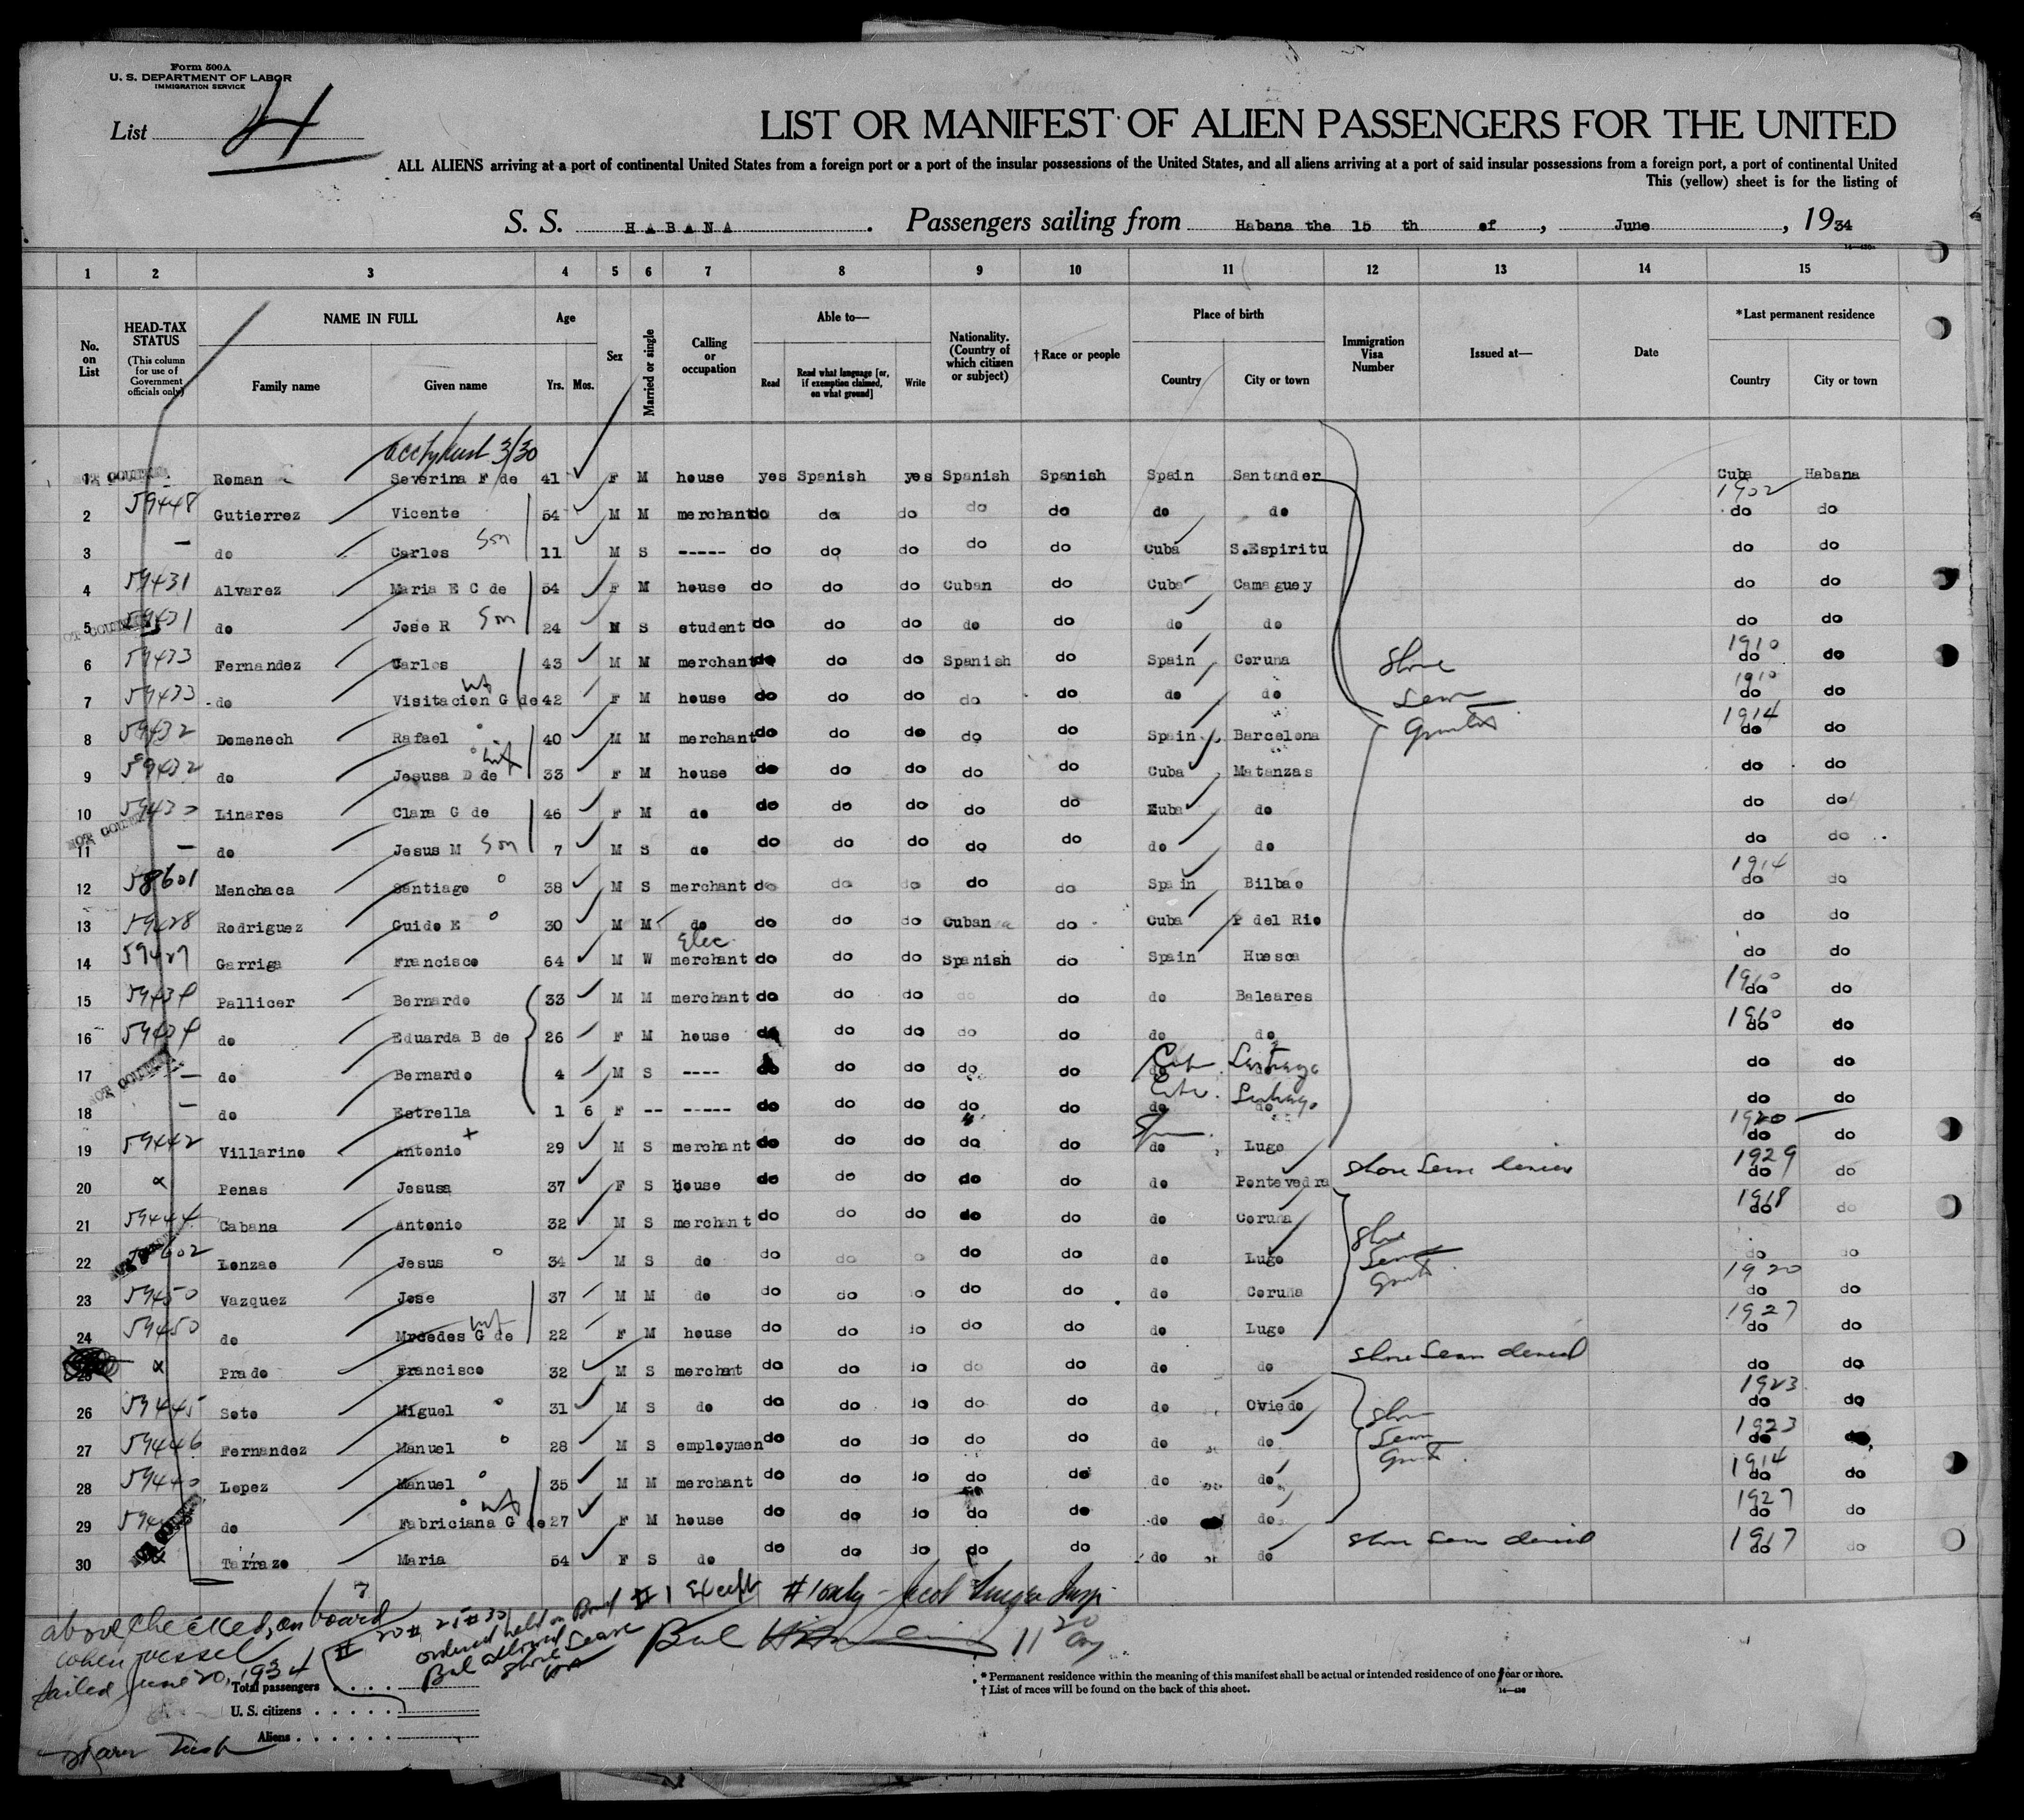 Form 500A
U. S. DEPARTMENT OF LABOR
IMMIGRATION SERVICE
List 4
LIST OR MANIFEST OF ALIEN PASSENGERS FOR THE UNITED
ALL ALIENS arriving at a port of continental United States from a foreign port or a port of the insular possessions of the United States, and all aliens arriving at a port of said insular possessions from a foreign port, a port of continental United
This (yellow) sheet is for the listing of
S. S. HABANA. Passengers sailing from Habana the 15 th of, June, 1934
1 2 3 4 5 6 7 8 9 10 11 12 13 14 15
No. on List
HEAD-TAX STATUS (This column for use of Government officials only)
NAME IN FULL Family name Given name
Age Yrs. Mos.
Sex
Married or single
Calling or occupation
Able to— Read Read what language [or, if exemption claimed, on what ground] Write
Nationality. (Country of which citizen or subject)
†Race or people
Place of birth Country City or town
Immigration Visa Number
Issued at—
Date
*Last permanent residence Country City or town
3/30
1 Roman Severina F de 41 F M house yes Spanish yes Spanish Spanish Spain Santander Cuba Habana
2 59448 Gutierrez Vicente 54 M M merchant do do do do do do do 1902 do do
3 — do Carlos Son 11 M S ----- do do do do do Cuba S.Espiritu do do
4 59431 Alvarez Maria E C de 54 F M house do do do Cuban do Cuba Camaguey do do
5 59431 do Jose R Son 24 M S student do do do do do do do do do
6 59433 Fernandez Carlos 43 M M merchant do do do Spanish do Spain Coruna 1910 do do
7 59433 do Visitacion G de 42 F M house do do do do do do do 1910 do do
8 59432 Domenech Rafael 40 M M merchant do do do do do Spain Barcelona 1914 do do
9 59432 do Jesusa D de 33 F M house do do do do do Cuba Matanzas do do
10 59430 Linares Clara G de 46 F M do do do do do do Cuba do do do
11 — do Jesus M Son 7 M S do do do do do do do do do do
12 58601 Menchaca Santiago 38 M S merchant do do do do do Spain Bilbao 1914 do do
13 59428 Rodriguez Guido E 30 M M do do do do Cuban do Cuba P del Rio do do
14 59427 Garriga Francisco 64 M W Elec. merchant do do do Spanish do Spain Huesca do do
15 Pallicer Bernardo 33 M M merchant do do do do do do Baleares do do
16 do Eduarda B de 26 F M house do do do do do do do do do
17 — do Bernardo 4 M S ---- do do do do do do do do
18 — do Estrella 1 6 F -- ----- do do do do do do do do do
19 59442 Villarino Antonio 29 M S merchant do do do do do do Lugo 1920 do do
20 x Penas Jesusa 37 F S house do do do do do do Pontevedra 1929 do do
21 59444 Cabana Antonio 32 M S merchant do do do do do do Coruna 1918 do do
22 Lonzao Jesus 34 M S do do do do do do Lugo do do
23 59450 Vazquez Jose 37 M M do do do do do do do Coruña 1920 do do
24 59450 do Mrcedes G de 22 F M house do do do do do do Lugo 1927 do do
25 x Prado Francisco 32 M S merchant do do do do do do do shore leave denied do do
26 59445 Soto Miguel 31 M S do do do do do do do Oviedo 1923 do do
27 59446 Fernandez Manuel 28 M S employmen do do do do do do do 1923 do do
28 59440 Lopez Manuel 35 M M merchant do do do do do do do 1914 do do
29 do Fabriciana G de 27 F M house do do do do do do do 1927 do do
30 Tarrazo Maria 54 F S do do do do do do do do shore leave denied 1917 do do
above checked, on board
when vessel
sailed June 20, 1934
# 20 # 25 # 30
ordered held on Board
Bal allowed
Shore Leave
#1 only
11 20 am
Total passengers
U. S. citizens
Aliens
* Permanent residence within the meaning of this manifest shall be actual or intended residence of one year or more.
† List of races will be found on the back of this sheet.